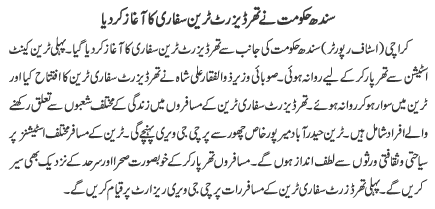 سندھ حکومت نے تھر ڈیزرٹ ٹرین سفاری کا آغاز کر دیا
کراچی (اسٹاف رپورٹر) سندھ حکومت کی جانب سے تھر ڈیزرٹ ٹرین سفاری کا آغاز کر دیا گیا۔ پہلی ٹرین کینٹ
اسٹیشن سے تھر پارکر کے لیے روانہ ہوئی۔ صوبائی وزیر ذوالفقار علی شاہ نے تھر ڈیزرٹ سفاری ٹرین کا افتتاح کیا اور
ٹرین میں سوار ہو کر روانہ ہوئے۔ تھر ڈیزرٹ سفاری ٹرین کے مسافروں میں زندگی کے مختلف شعبوں سے تعلق رکھنے
والے افراد شامل ہیں۔ ٹرین حیدرآباد میرپور خاص چھور سے پر چی جی ویری پہنچے گی۔ ٹرین کے مسافر مختلف اسٹیشنز پر
سیاحتی و ثقافتی ورثوں سے لطف انداز ہوں گے۔ مسافروں تھر پارکر کے خوبصورت صحرا اور سرحد کے نزدیک بھی سیر
کریں گے۔ پہلی تھر ڈزرٹ سفاری ٹرین کے مسافر رات پر چی جی ویری ریزارٹ پر قیام کریں گے۔